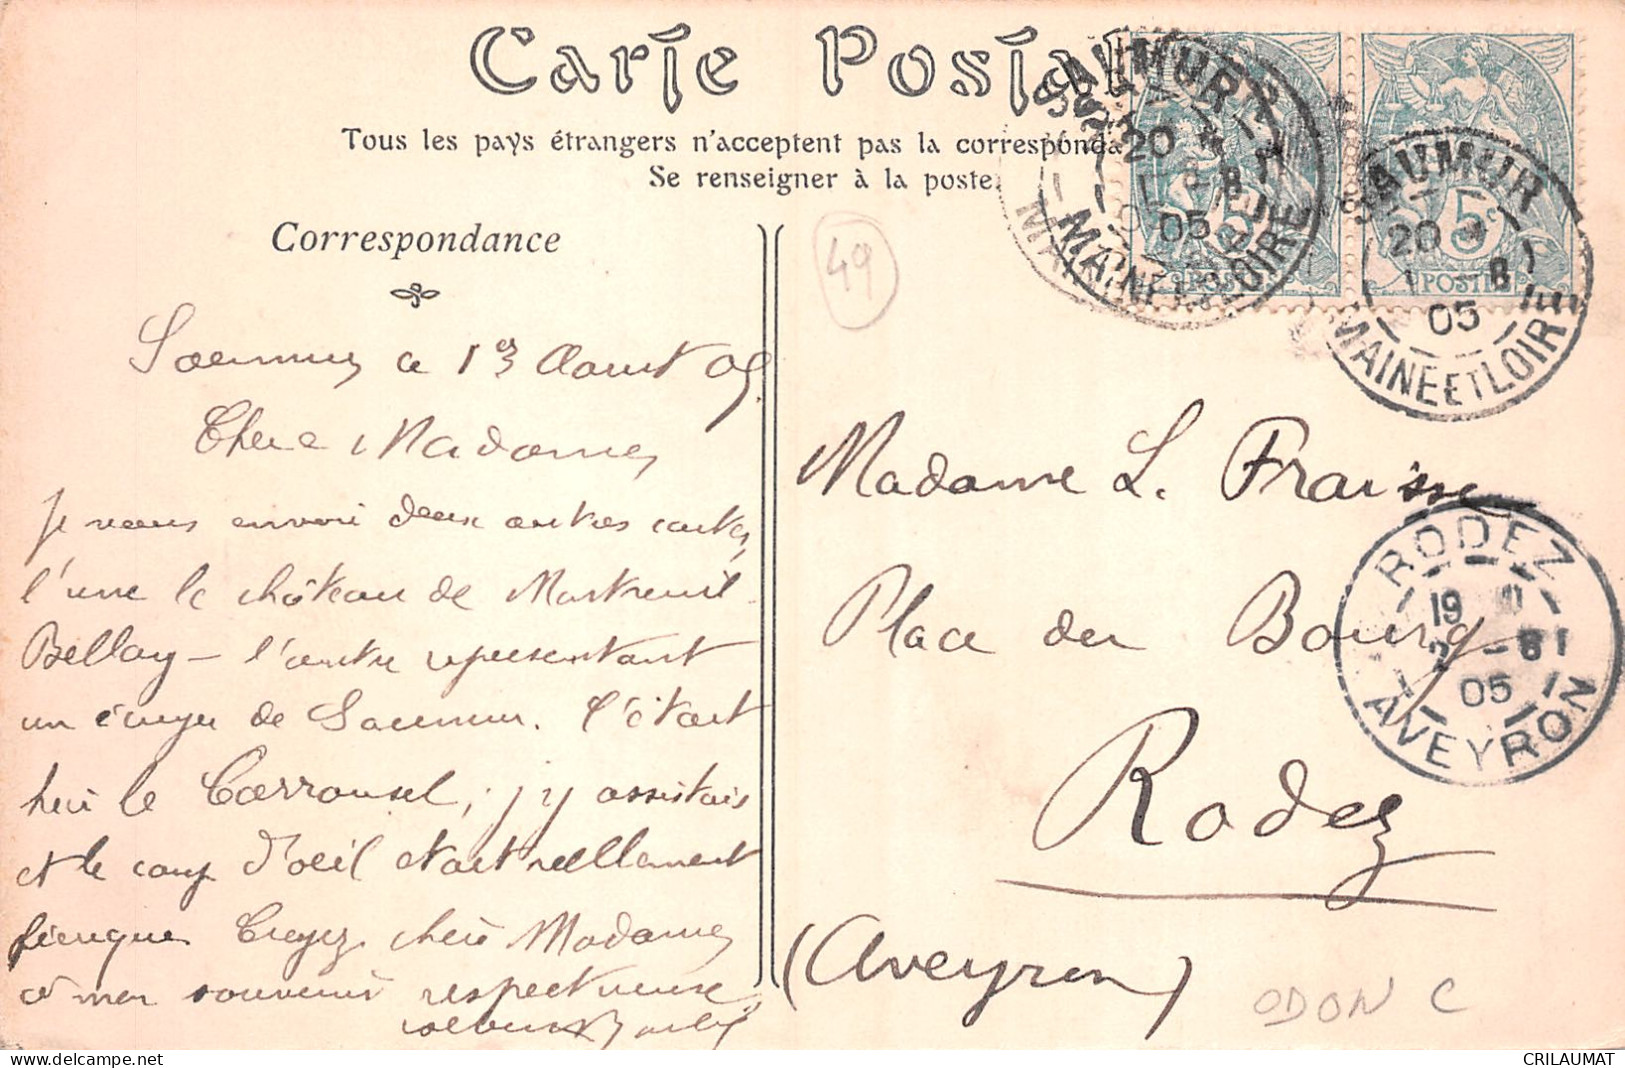 Carte Postale
Tous les pays étrangers n'acceptent pas la corresponda
Se renseigner à la poste.
Correspondance
49
SAUMUR
20
1 8
05
MAINE ET LOIRE
5c
POSTES
SAUMUR
20
1 8
05
MAINE ET LOIRE
5c
POSTES
Saumur ce 1er Aout 05
Chere Madame,
Je vous envoi deux autres cartes,
l'une le château de Montreuil
Bellay – l'autre representant
un écuyer de Saumur. C'était
hier le Carrousel, j'y assistais
et le coup d'oeil etait reellement
féerique Croyez chère Madame,
à mon souvenir respectueux
Madame L. Fraisse
Place du Bourg
Rodez
(Aveyron)
RODEZ
19
2 -8
05
AVEYRON
ODON C
CRILAUMAT